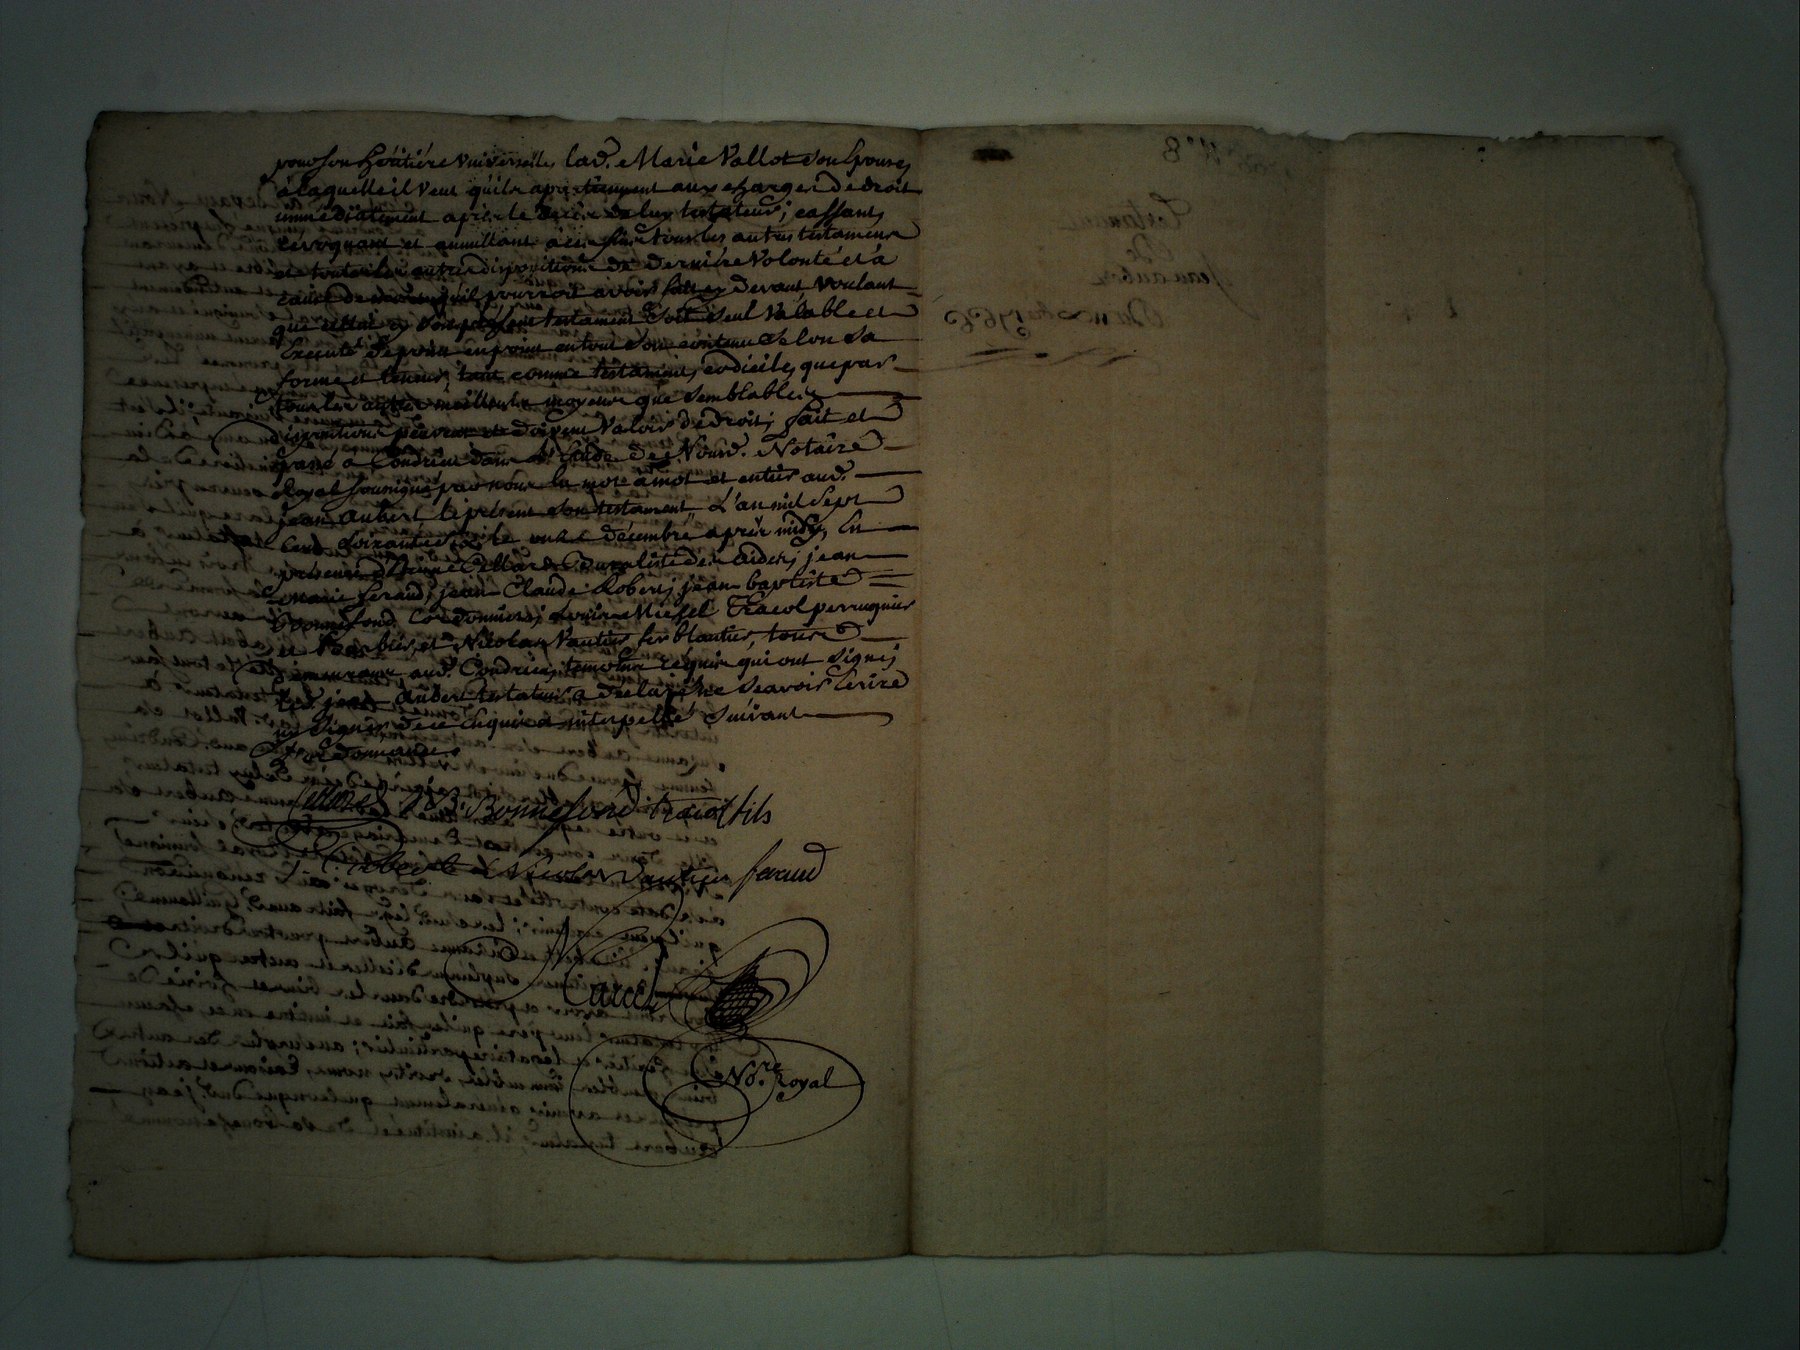 pour son héritière universelle, lad. Marie Vallot son épouse,
à laquelle il veut qu'ils apartiennent aux charges de droit
immédiatement après le décès de luy testateur; cassant,
révoquant et annullant à ces fins tous les autres testamens
et toutes les autres dispositions de dernière volonté et à
cause de mort qu'il pourroit avoir fait cy devant voulant
que cestui cy son présent testament soit seul valable et
Exécuté de point en point en tout son contenu selon sa
forme et teneur, tant comme testament, codicile, que par
tous les autres meilleurs moyens que semblables
dispositions peuvent et doivent valoir de droit; fait et
passé à Condrieu dans l'Etude de Nousd. Notaire
Royal soussigné par nous lu mot à mot et entier aud.
jean aubert le présent son testament, L'an mil sept
cent soixante six le onze décembre après midy, En
présence d'Etienne Cellard Buraliste des aides, jean
marie feraud, jean Claude Robert, jean baptiste
Bonnefond Cordonniers, Louis Michel Tracol perruquier
et Nicolas Vautier ferblantier, tous
demeurant aud. Condrieu, témoins requis qui ont signé,
led. jean aubert testateur a déclaré ne sçavoir Ecrire
ny signer de ce Enquis et interpellé suivant
l'ordonnance
Cellard J B. Bonnefond tracol fils
Robert Nicolas Vautier feraud
Nore. Royal
N° 8
Testament
De
Jean aubert